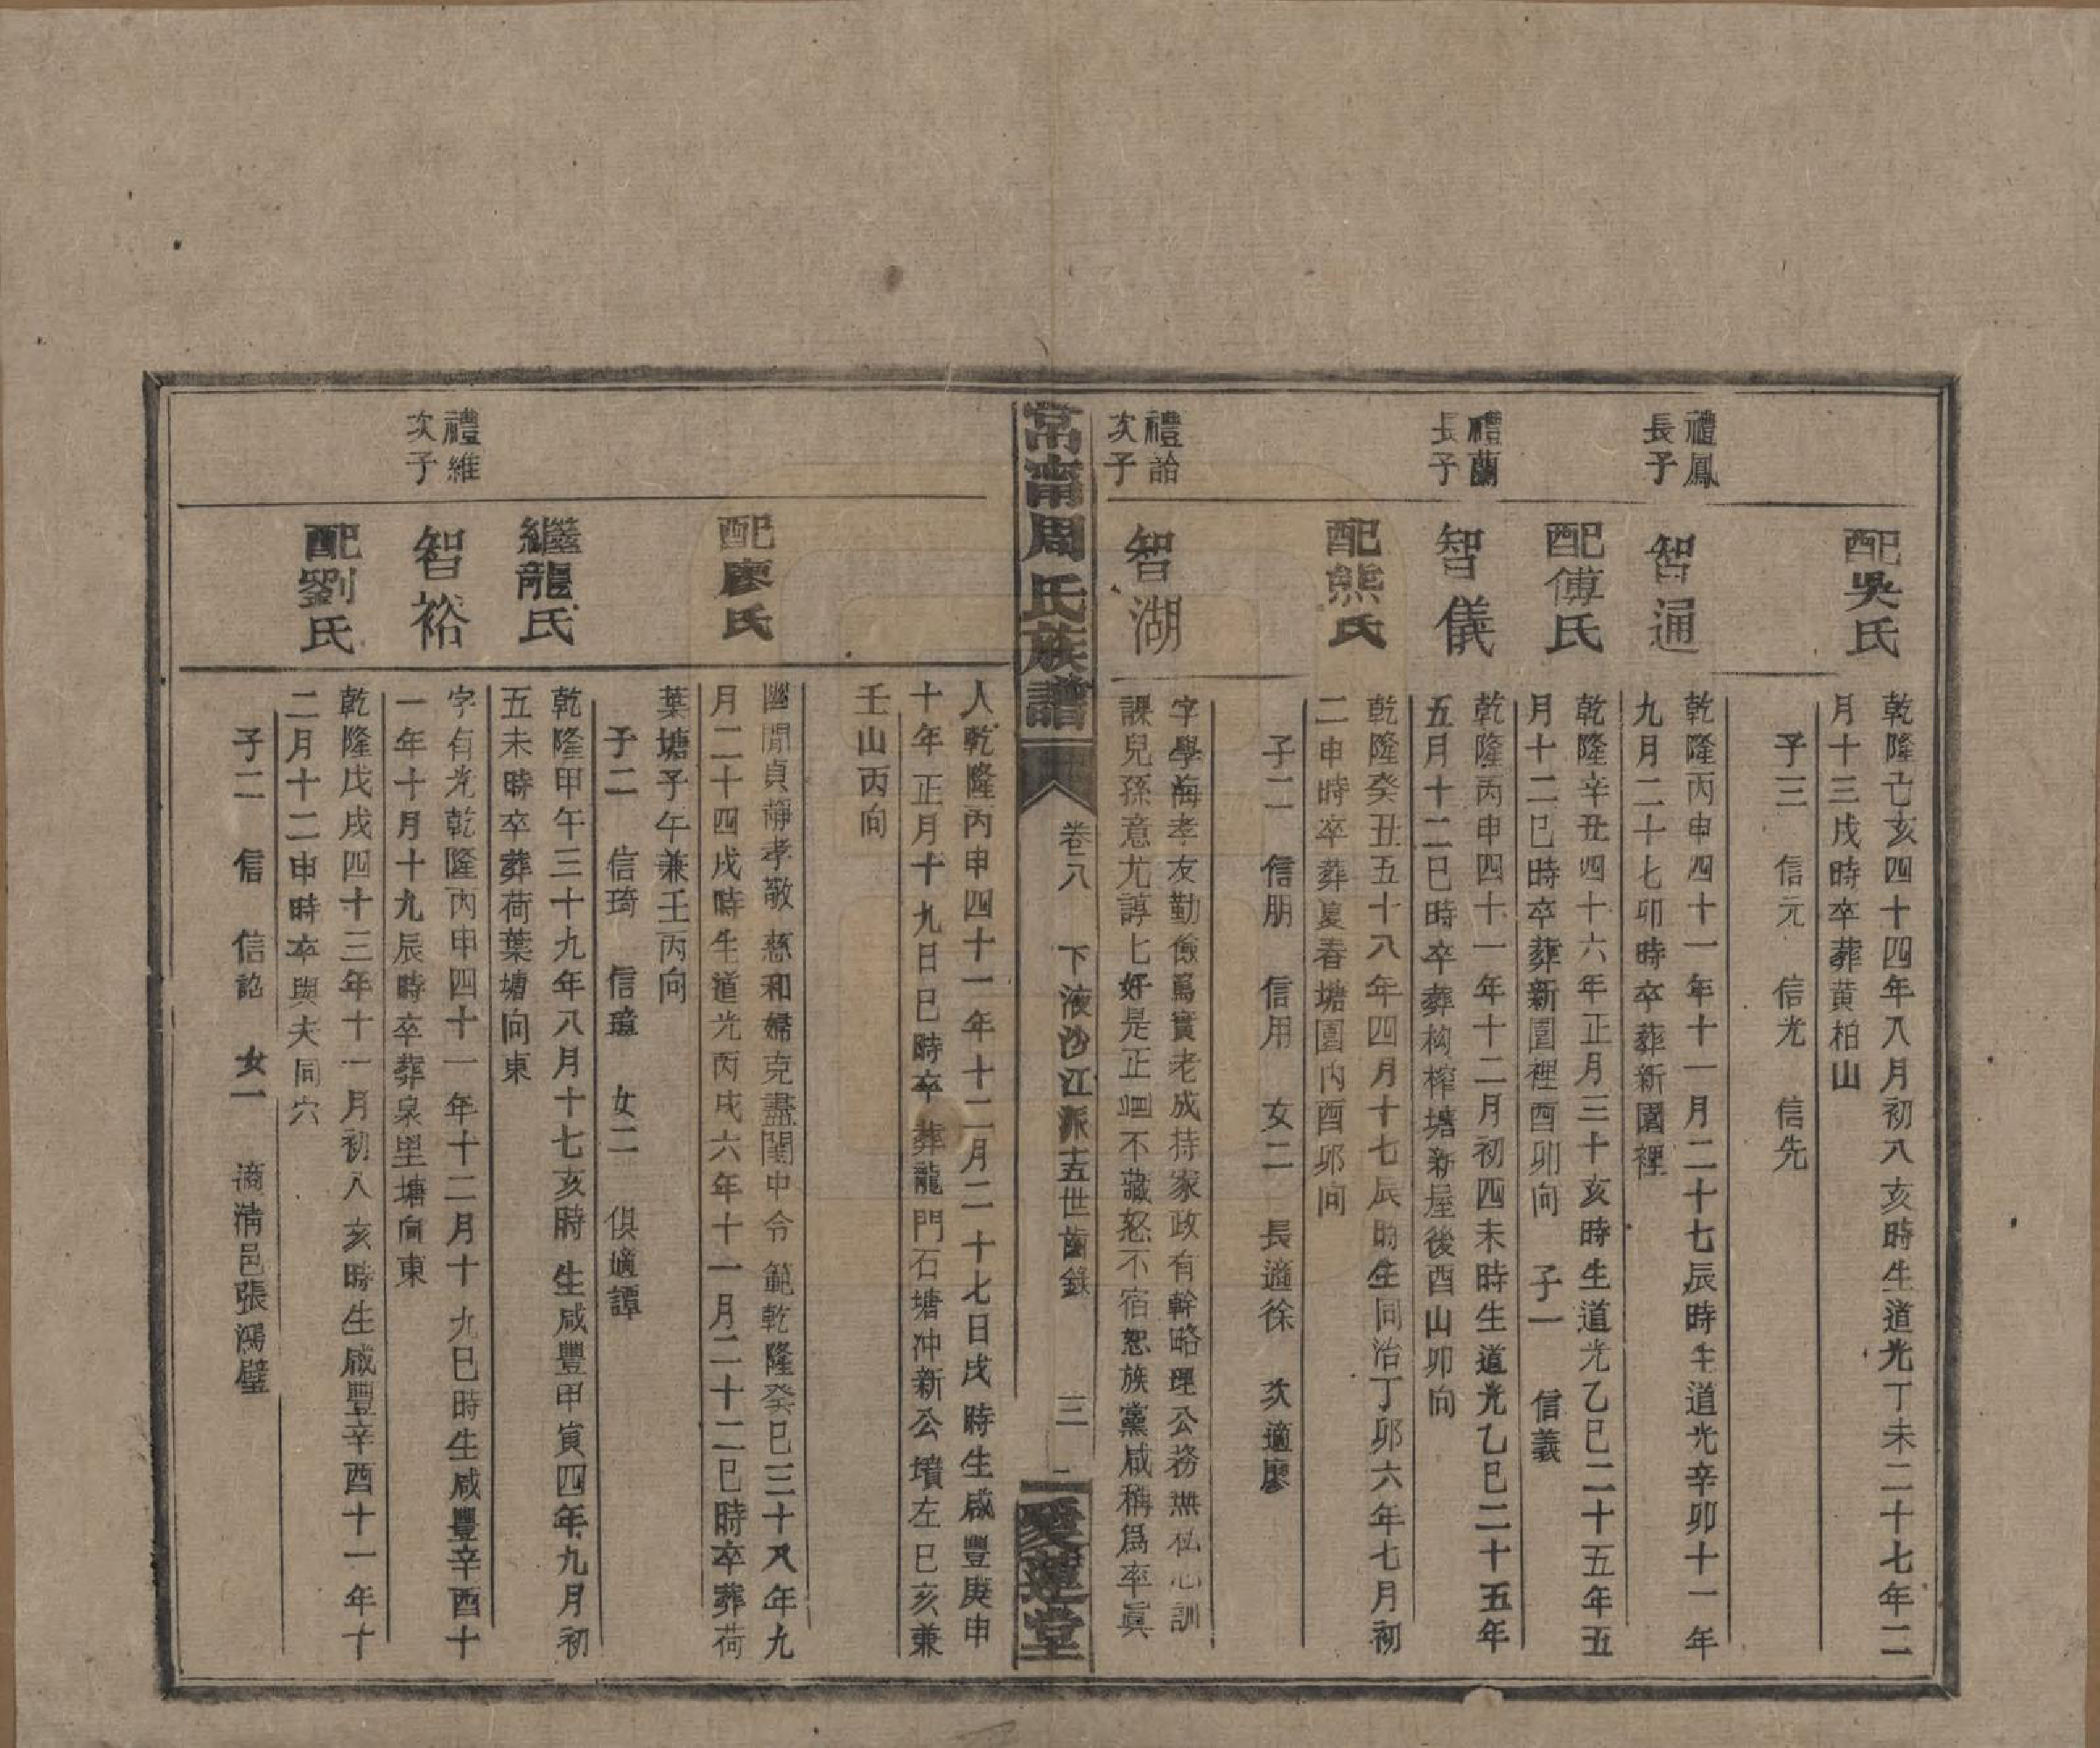 配吳氏
乾隆己亥四十四年八月初八亥時生道光丁未二十七年二
月十三戌時卒葬黃柏山
子三 信元 信光 信先
禮鳳
長子
智通
乾隆丙申四十一年十一月二十七辰時生道光辛卯十一年
九月二十七卯時卒葬新園裡
配傅氏
乾隆辛丑四十六年正月三十亥時生道光乙巳二十五年五
月十二巳時卒葬新園裡酉卯向 子一 信義
禮蘭
長子
智儀
乾隆丙申四十一年十二月初四未時生道光乙巳二十五年
五月十二巳時卒葬构榨塘新屋後酉山卯向
配熊氏
乾隆癸丑五十八年四月十七辰時生同治丁卯六年七月初
二申時卒葬夏春塘園內酉卯向
子二 信朋 信用 女二 長適徐 次適廖
禮詒
次子
智湖
字學海孝友勤儉篤實老成持家政有幹略理公務無私心訓
課兒孫意尤諄七好是正直不藏怒不宿怨族黨咸稱爲率眞
常甯周氏族譜
卷八 下液沙江派十五世齒錄 三 二
愛蓮堂
人乾隆丙申四十一年十二月二十七日戌時生咸豐庚申
十年正月十九日巳時卒葬龍門石塘冲新公墳左巳亥兼
壬山丙向
配廖氏
幽閒貞靜孝敬慈和婦克盡閨中令範乾隆癸巳三十八年九
月二十四戌時生道光丙戌六年十一月二十二巳時卒葬荷
葉塘子午兼壬丙向
子二 信琦 信璋 女二 俱適譚
繼龍氏
乾隆甲午三十九年八月十七亥時生咸豐甲寅四年九月初
五未時卒葬荷葉塘向東
禮維
次子
智裕
字有光乾隆丙申四十一年十二月十九巳時生咸豐辛酉十
一年十月十九辰時卒葬泉里塘向東
配劉氏
乾隆戊戌四十三年十一月初八亥時生咸豐辛酉十一年十
二月十二申時卒與夫同穴
子二 信 信詔 女一 適清邑張鴻璧